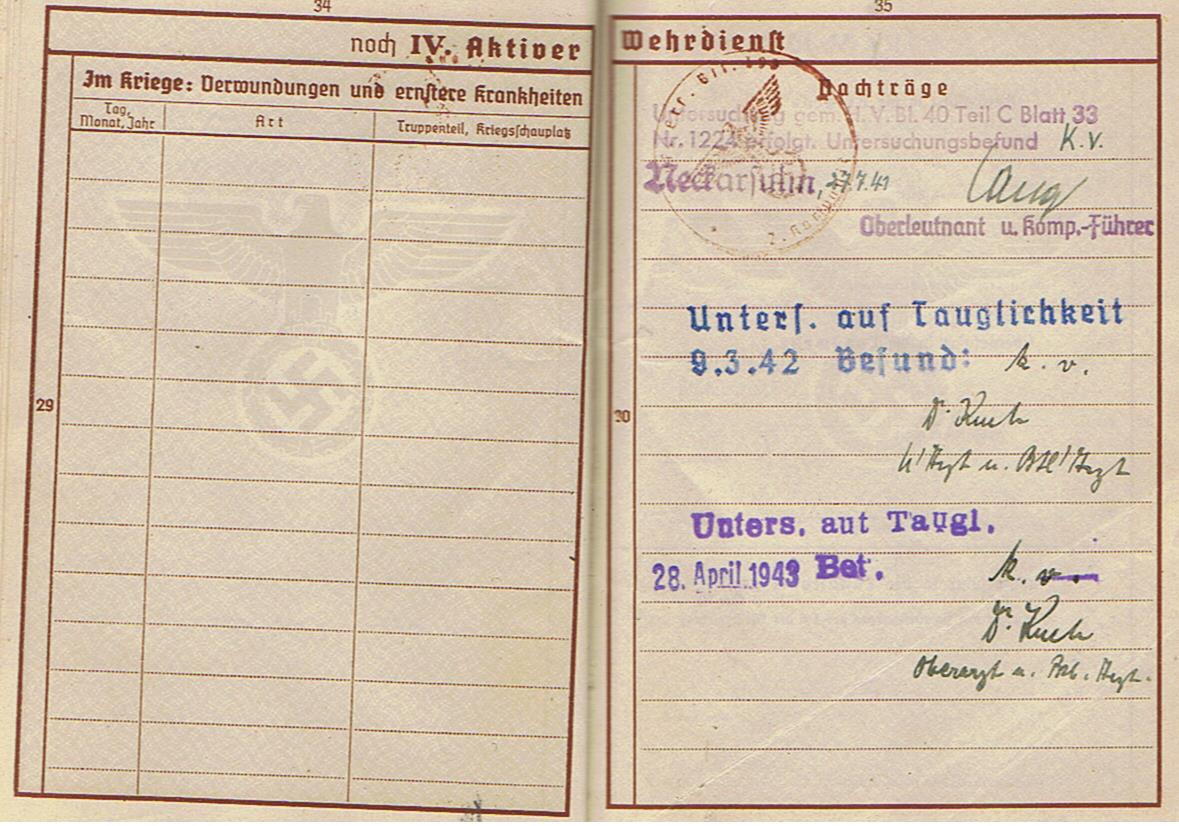 34
noch IV. Aktiver
Im Kriege: Verwundungen und ernstere Krankheiten
Tag, Monat, Jahr
Art
Truppenteil, Kriegsschauplatz
29
35
Wehrdienst
Nachträge
Untersuchung gem. H.V.Bl. 40 Teil C Blatt 33
Nr. 1224 erfolgt. Untersuchungsbefund K.v.
Neckarsulm, 27.7.41
Oberleutnant u. Komp.-Führer
30
Unters. auf Tauglichkeit
9.3.42 Befund: k. v.
Unters. auf Taugl.
28. April 1943 Bef. k. v.
Oberarzt u.